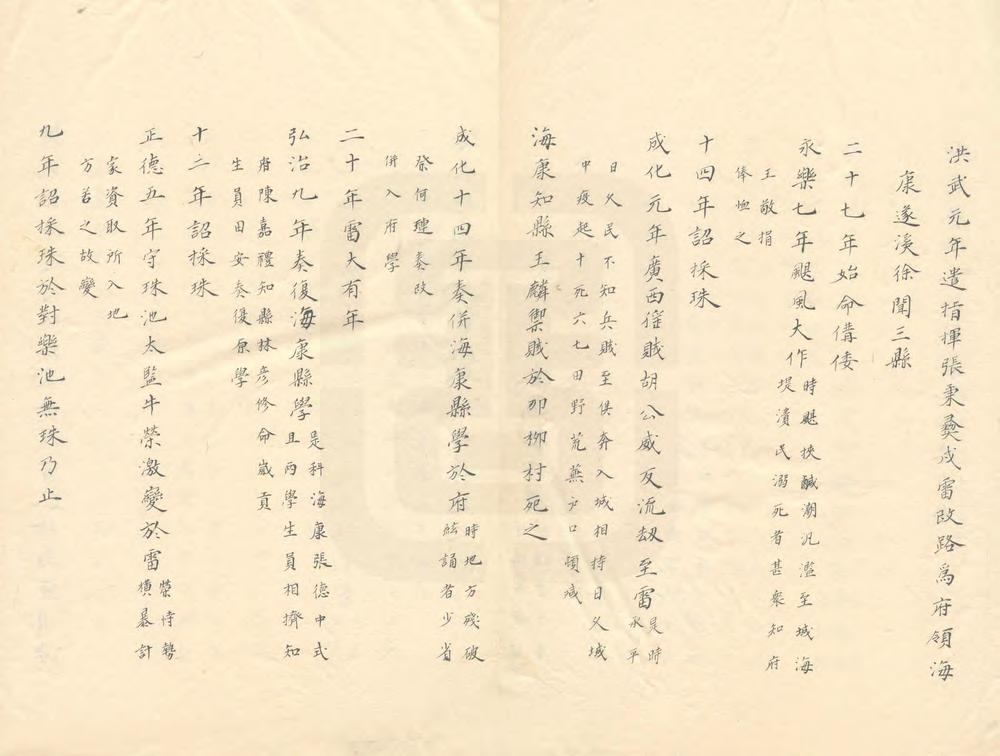 洪武元年遣指揮張秉彝戍雷改路爲府領海
康遂溪徐聞三縣
二十七年始命備倭
永樂七年颶風大作
時颶挾鹹潮汎濫至城海
堤潰民溺死者甚衆知府
王敬捐
俸恤之
十四年詔採珠
成化元年廣西猺賊胡公威反流刼至雷
是時
承平
日久民不知兵賊至俱奔入城相持日久城
中疫起十死六七田野荒蕪戶口頓減
海康知縣王麟禦賊於那柳村死之
成化十四年奏併海康縣學於府
時地方殘破
絃誦者少省
祭何理奏改
併入府學
二十年雷大有年
弘治九年奏復海康縣學
是科海康張德中式
且两學生員相擠知
府陳嘉禮知縣林彥修命歲貢
生員田安奏復原學
十二年詔採珠
正德五年守珠池太監牛榮激變於雷
榮恃勢
橫暴計
家資取所入地
方苦之故變
九年詔採珠於對樂池無珠乃止